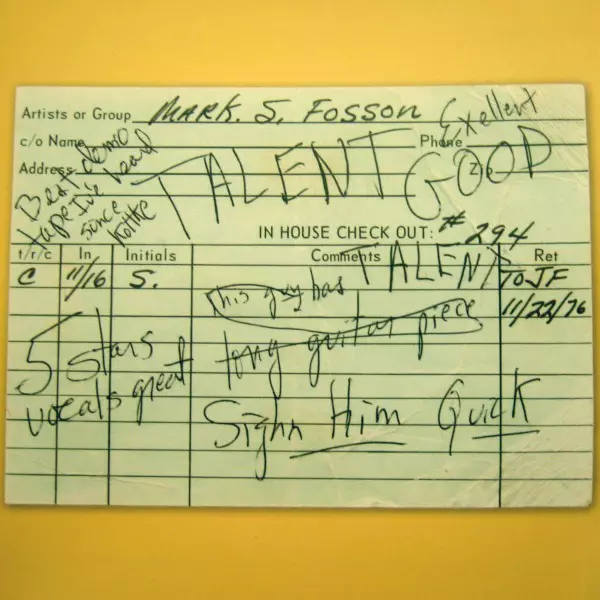 Artists or Group MARK. S. FOSSON Exellent
c/o Name Phone
Address Zip
Best demo
tape I've heard
since
Kottke
TALENT GOOD
IN HOUSE CHECK OUT: # 294
t/r/c In Initials Comments Ret
C 11/16 S. this guy has TALENT TO JF
11/22/76
5 stars long guitar piece
vocals great
Sighn Him Quick